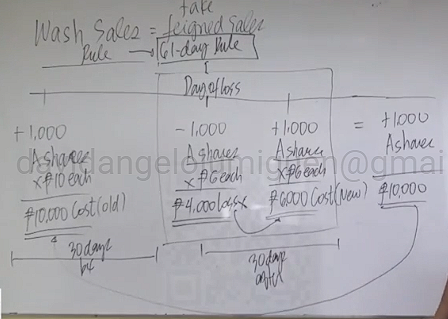 fake
Wash Sales = feigned Sales
Rule → 61-day Rule
Day of loss
+1,000
A shares
x ₱10 each
₱10,000 Cost (old)
-1,000
A shares
x ₱6 each
₱4,000 loss x
+1,000
A shares
x ₱6 each
₱6000 Cost (New)
= +1,000
A shares
₱10,000
30 days
bef
30 days
after